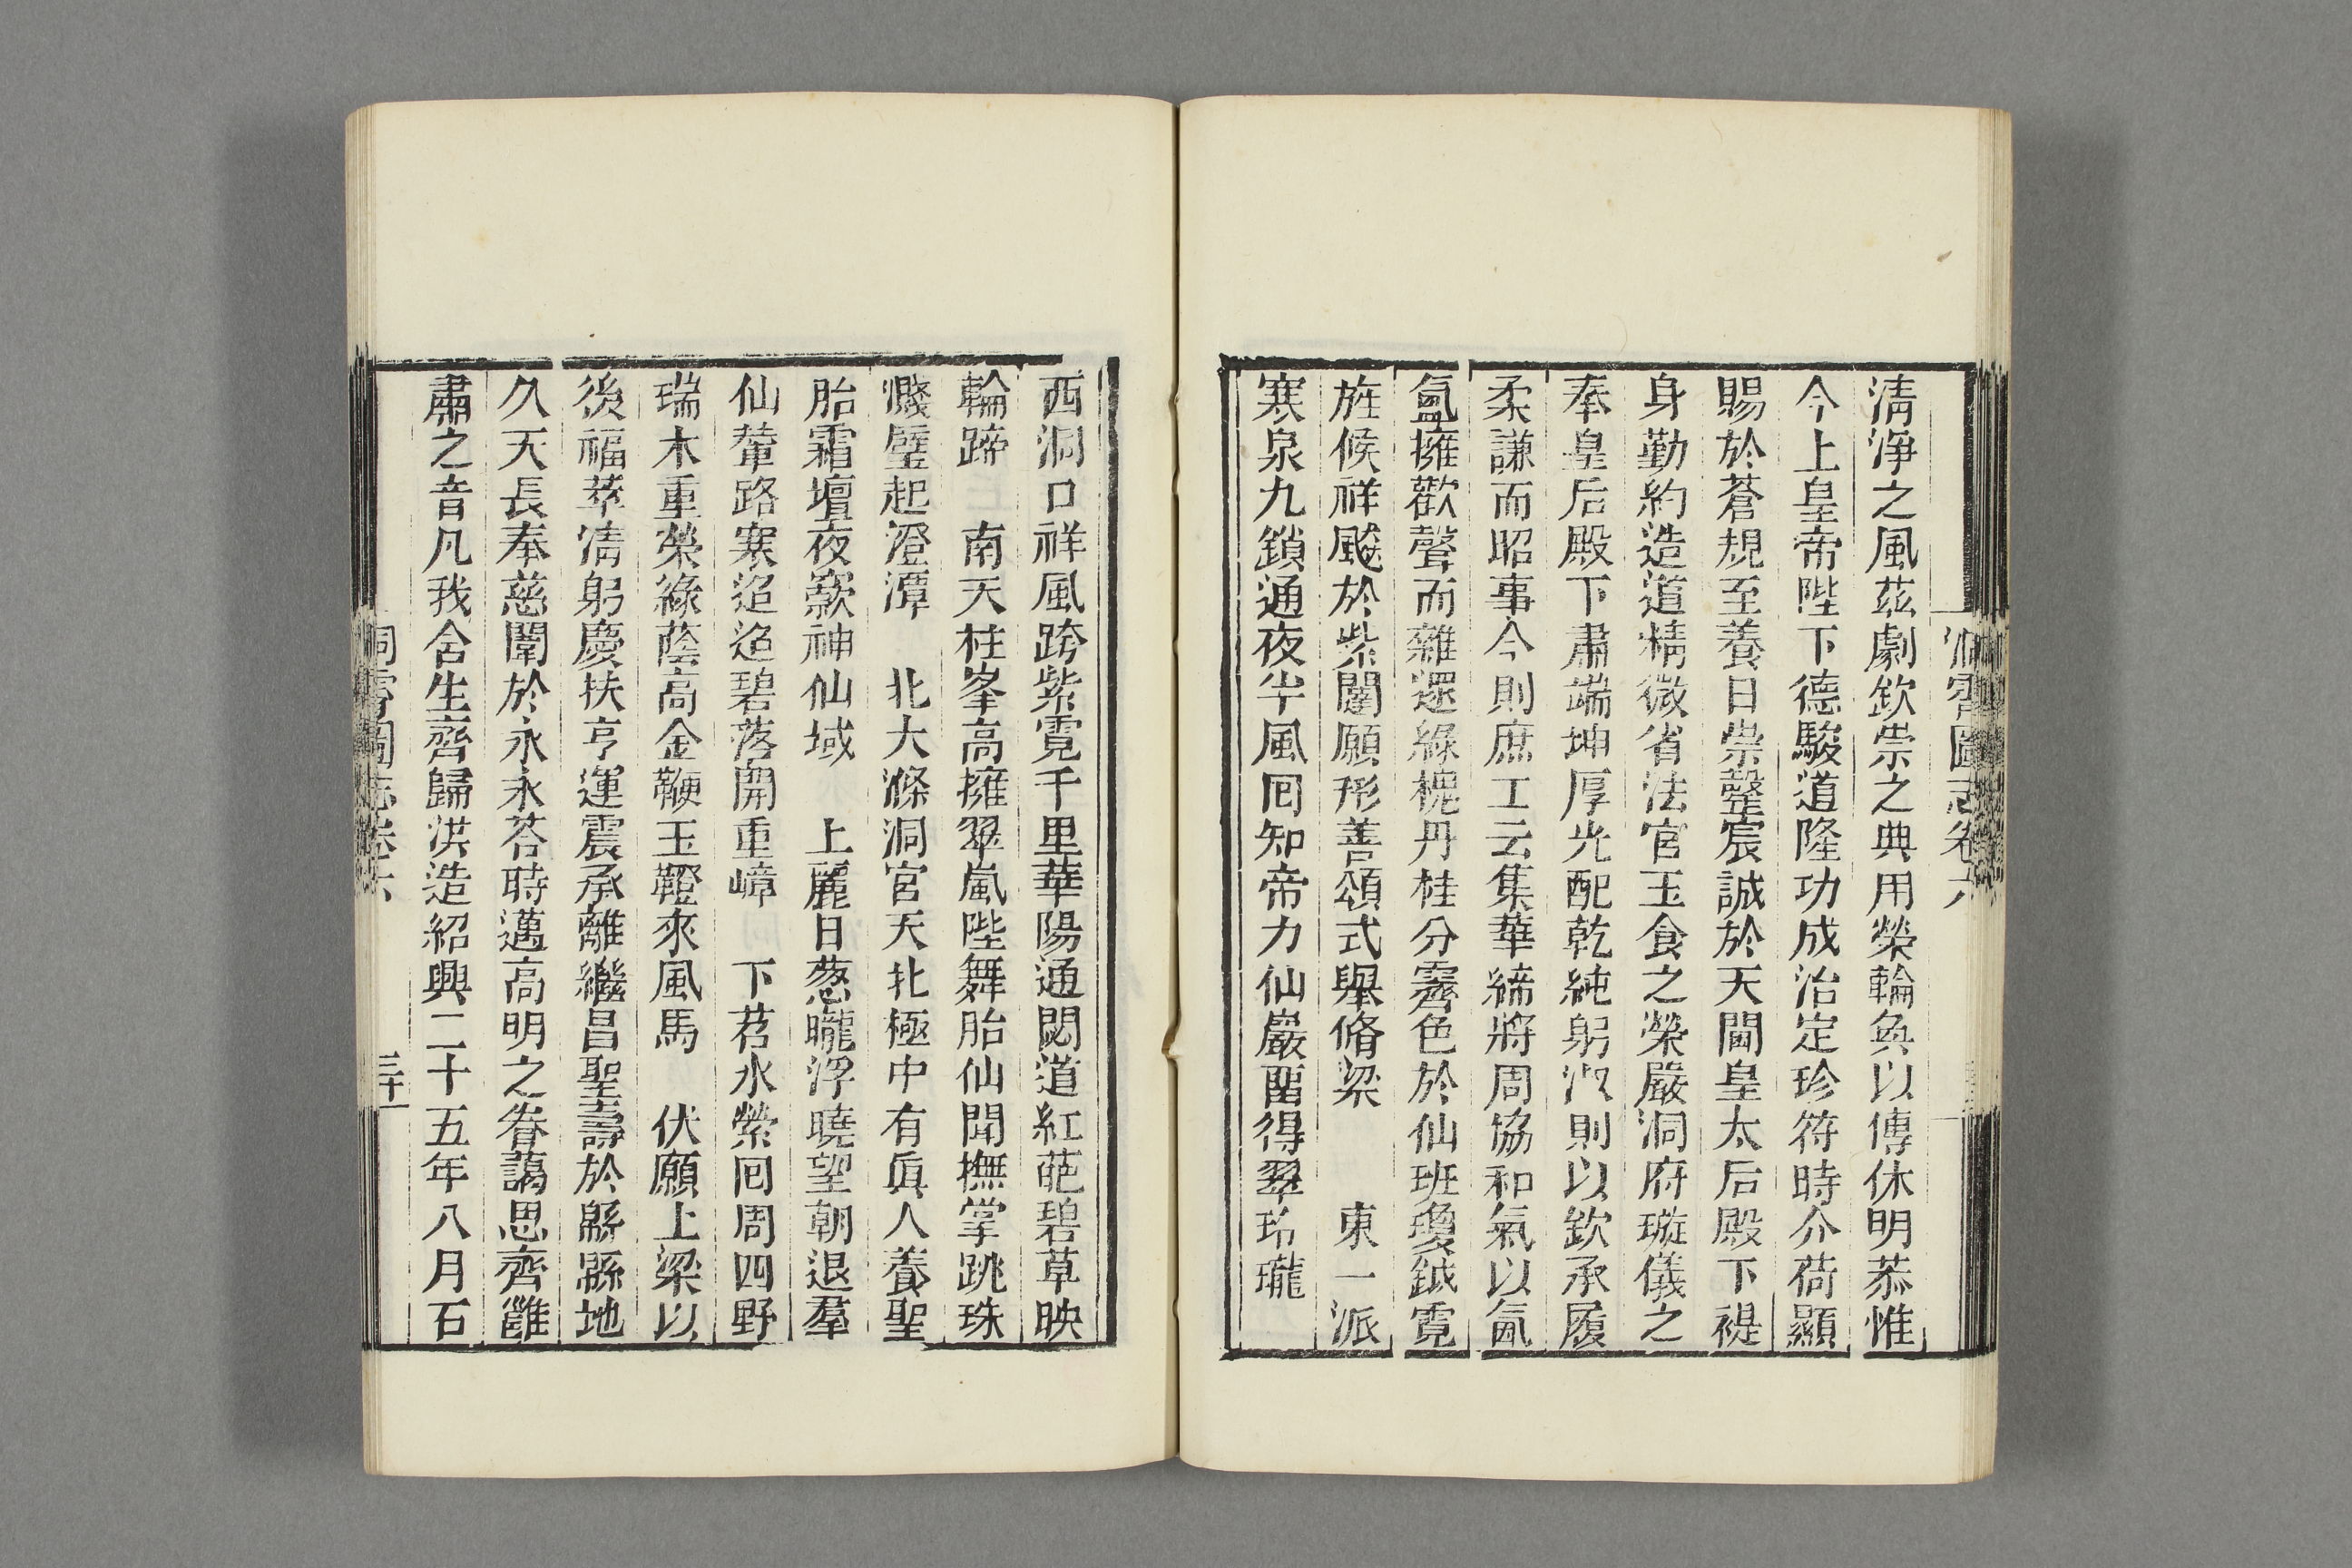 洞霄圖志卷六
清淨之風茲劇欽崇之典用榮輪奐以傳休明恭惟
今上皇帝陛下德駿道隆功成治定珍符時介荷顯
賜於蒼規至養日崇罄宸誠於天閫皇太后殿下禔
身勤約造道精微省法官玉食之榮嚴洞府璇儀之
奉皇后殿下肅端坤厚光配乾純躬淑則以欽承履
柔謙而昭事今則庶工云集華締將周協和氣以氤
氳擁歡聲而雜遝綠櫬丹桂分霽色於仙班瓊鉞霓
旌候祥飈於紫闥願形善頌式舉脩梁　東一派
寒泉九鎖通夜半風回知帝力仙巖畱得翠玲瓏
西洞口祥風跨紫霓千里華陽通閟道紅葩碧草映
輪蹄　南天柱峯高擁翠嵐陛舞胎仙閒撫掌跳珠
濺壁起澄潭　北大滌洞宮天北極中有眞人養聖
胎霜壇夜窾神仙域　上麗日葱曨浮曉望朝退羣
仙輦路寒迢迢碧落開重嶂　下苕水縈回周四野
瑞木重榮綠蔭高金鞭玉鐙來風馬　伏願上梁以
後福萃淸躬慶扶亨運震承離繼昌聖壽於緜緜地
久天長奉慈闈於永永荅時邁高明之眷藹思齊雝
肅之音凡我含生齊歸洪造紹興二十五年八月石
洞霄圖志卷六
三十一